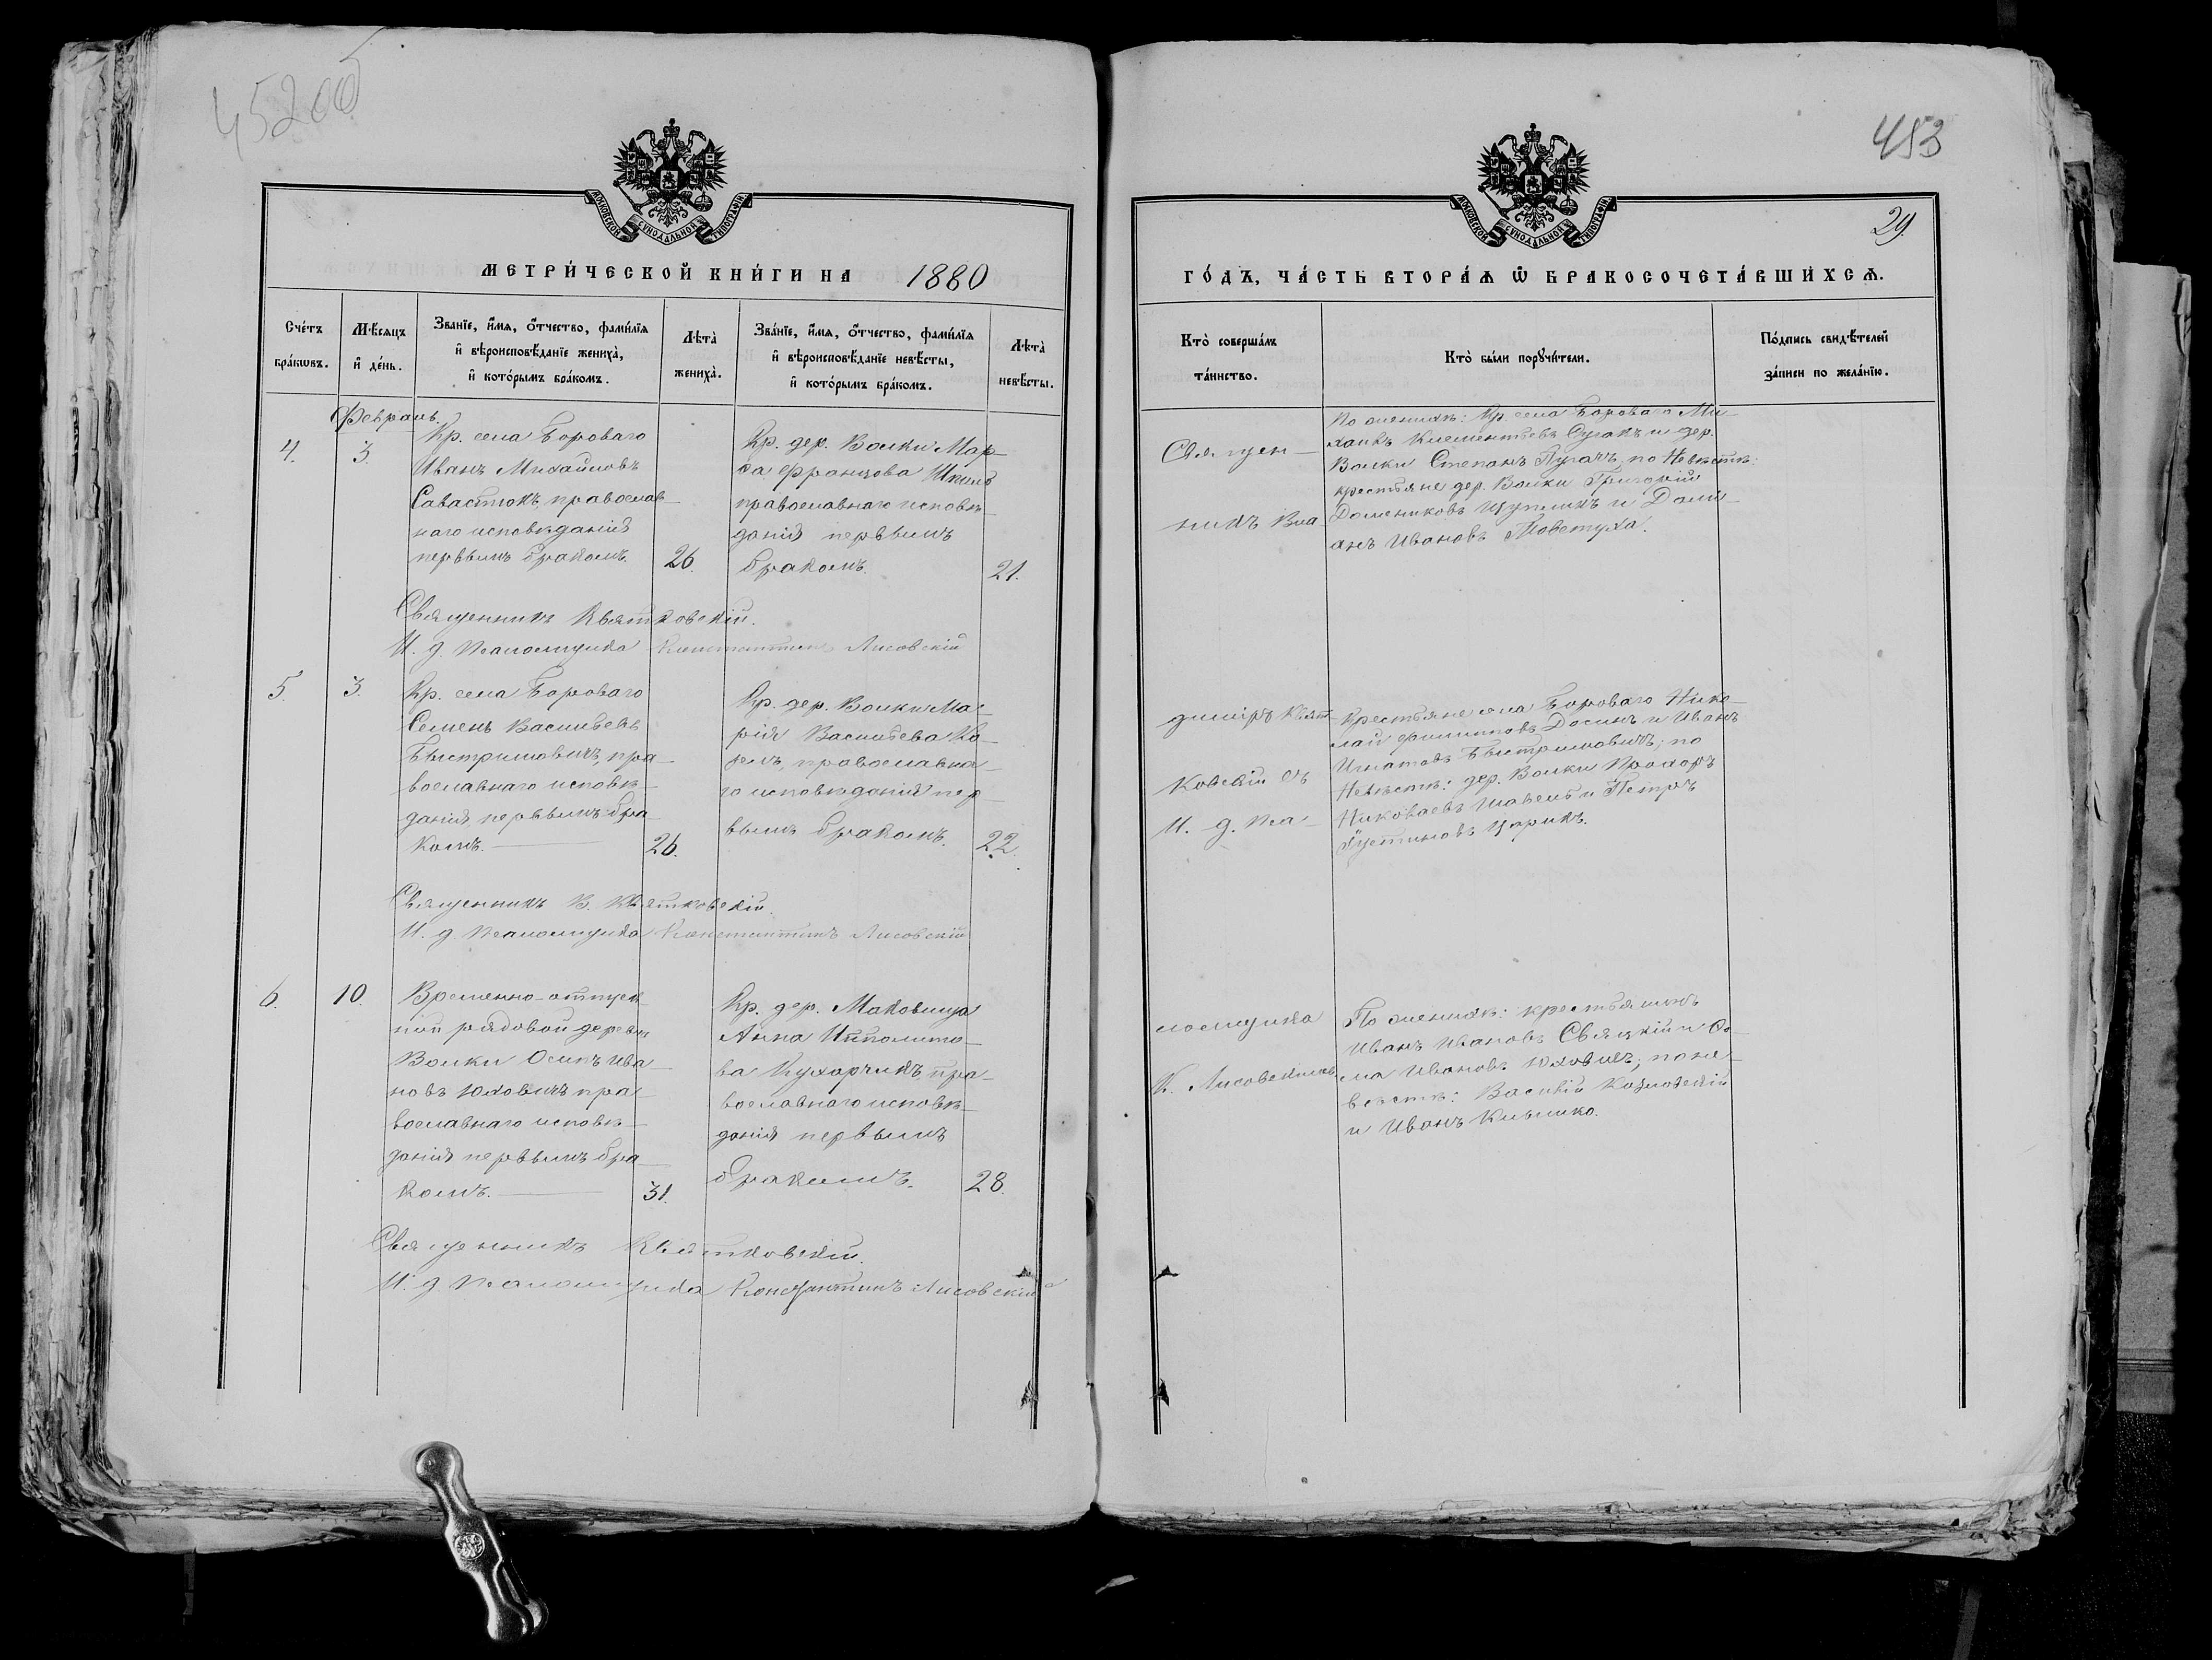 45200
453
МОСКОВСКОЙ СѴНОДАЛЬНОЙ ТИПОГРАФІИ
МОСКОВСКОЙ СѴНОДАЛЬНОЙ ТИПОГРАФІИ
29.
МЕТРИ́ЧЕСКОЙ КНИ́ГИ НА 1880
ГО́ДЪ, ЧА́СТЬ ВТОРА́Ѧ Ѽ БРАКОСОЧЕТА́ВШИХСѦ.
Счéтъ бра́кѡвъ.
Мѣ́сяцъ и҆ де́нь.
Зва́нїе, и҆́мѧ, ѻ҆́тчество, фамѝлїѧ
и҆ вѣроисповѣ́данїе жениха̀,
и҆ кото́рымъ бра́комъ.
Лѣта̀ жениха̀.
Зва́нїе, и҆́мѧ, ѻ҆́тчество, фамѝлїѧ
и҆ вѣроисповѣ́данїе невѣ́сты,
и҆ кото́рымъ бра́комъ.
Лѣта̀ невѣ́сты.
Кто̀ соверша́лъ та́инство.
Кто̀ бы́ли порꙋчи́тели.
По́дпись свидѣ́телей за́писи по жела́нїю.
Февраль.
4.
3.
Кр. села Бороваго
Иванъ Михайловъ
Савастюкъ, православ-
наго исповѣданія
первымъ бракомъ.
26.
Кр. дер. Волки Мар-
ѳа Францова Шпилъ
православнаго исповѣ-
данія первымъ
бракомъ.
21.
Священ-
никъ Вла
По женихѣ: Кр. села Бороваго Ми-
хаилъ Климентьевъ Сугакъ и дер.
Волки Степанъ Пугачъ, по Невѣстѣ:
крестьяне дер. Волки Григорій
Домениковъ Цуприкъ и Доми-
анъ Ивановъ Повстуха.
Священникъ Квятковскій.
И. д. псаломщика Константинъ Лисовскій
5.
3.
Кр. села Бороваго
Семенъ Васильевъ
Быстримовичъ, пра-
вославнаго исповѣ-
данія, первымъ бра-
комъ.
26.
Кр. дер. Волки Ма-
рія Васильева Ко-
зелъ, православна-
го исповѣданія пер-
вымъ бракомъ.
22.
диміръ Квят-
ковскій съ
И. д. пса-
Крестьяне села Бороваго Нико-
лай Филиповъ Досинъ и Иванъ
Игнатовъ Быстримовичъ; по
Невѣстѣ: дер. Волки Прохоръ
Николаевъ Шавелъ и Петръ
Густиновъ Царикъ.
Священникъ В. Квятковскій.
И. д. псаломщика Константинъ Лисовскій
6.
10.
Временно-отпуск-
ной рядовой деревни
Волки Осипъ Ива-
новъ Юховичъ пра-
вославнаго исповѣ-
данія первымъ бра-
комъ.
31.
Кр. дер. Маковища
Анна Ипполито-
ва Кухарчикъ, пра-
вославнаго исповѣ-
данія первымъ
бракомъ.
28.
ломщика
К. Лисовскимъ.
По женихѣ: крестьянинъ
Иванъ Ивановъ Святскій и Ѳо-
ма Ивановъ Юховичъ; по не-
вѣстѣ: Василій Козловскій
и Иванъ Климко.
Священникъ Квятковскій.
И. д. псаломщика Константинъ Лисовскій